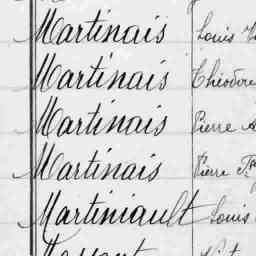 Martinais Louis
Martinais Théodore
Martinais Pierre
Martinais Pierre
Martiniault Louis